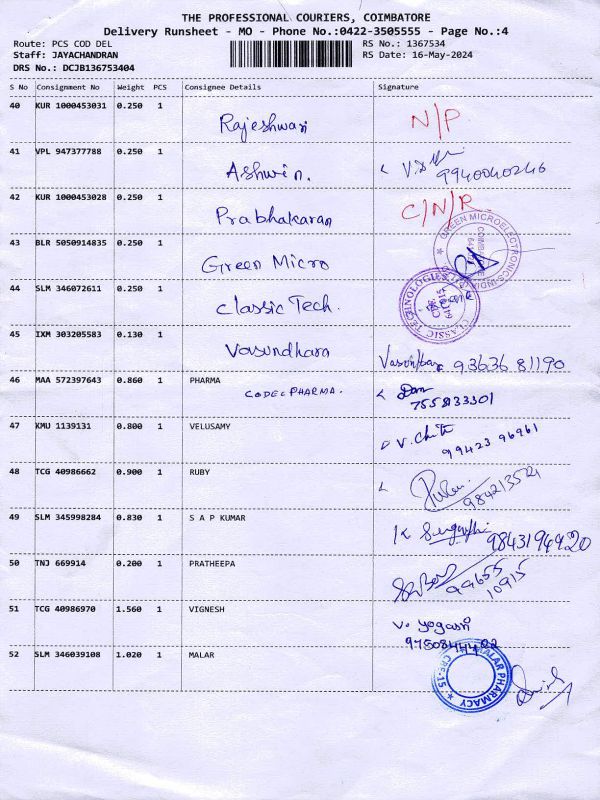 THE PROFESSIONAL COURIERS, COIMBATORE
Delivery Runsheet - MO - Phone No.:0422-3505555 - Page No.:4
Route: PCS COD DEL RS No.: 1367534
Staff: JAYACHANDRAN RS Date: 16-May-2024
DRS No.: DCJB136753404
S No Consignment No Weight PCS Consignee Details Signature
40 KUR 1000453031 0.250 1 Rajeshwari N/P
41 VPL 947377788 0.250 1 Ashwin. 9940040246
42 KUR 1000453028 0.250 1 Prabhakaran C/N/R
43 BLR 5050914835 0.250 1 Green Micro GREEN MICROELECTRONICS INDIA
44 SLM 346072611 0.250 1 Classic Tech. CLASSIC TECHNOLOGIES
45 IXM 303205583 0.130 1 Vasundhara 93636 81190
46 MAA 572397643 0.860 1 PHARMA
CODEC PHARMA.
47 KMU 1139131 0.800 1 VELUSAMY 99423 96961
48 TCG 40986662 0.900 1 RUBY
49 SLM 345998284 0.830 1 S A P KUMAR 9843194920
50 TNJ 669914 0.200 1 PRATHEEPA 99655
10915
51 TCG 40986970 1.560 1 VIGNESH V. Yogasri
52 SLM 346039108 1.020 1 MALAR MALAR PHARMACY CBE-15